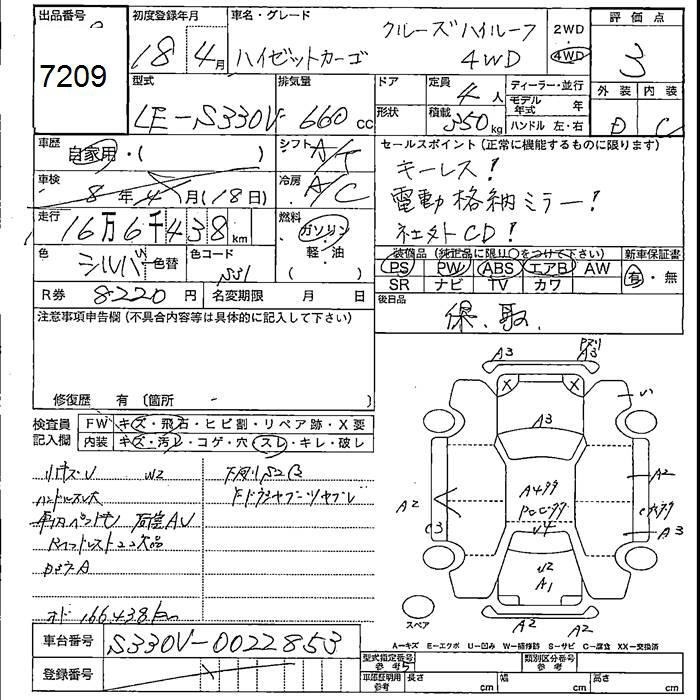 出品番号
7209
初度登録年月
18年4月
車名・グレード
ハイゼットカーゴ
クルーズハイルーフ
4WD
2WD
4WD
評価点
3
外装 内装
D C
型式
LE-S330V
排気量
660 cc
ドア
形状
定員
4人
積載
350kg
ディーラー・並行
モデル年式 年
ハンドル 左・右
車歴
自家用・( )
シフト
A/T
車検
8年4月(18日)
冷房
A/C
走行
16万6千438km
燃料
ガソリン
軽・油
( )
色
シルバー
色替
色コード
S31
R券 8220円
名変期限 月 日
セールスポイント(正常に機能するものに限ります)
キーレス!
電動格納ミラー!
社外CD!
装備品(純正品に限り○をつけて下さい)
PS PW ABS エアB AW
SR ナビ TV カワ
新車保証書
有・無
後日品
保、取
注意事項申告欄(不具合内容等は具体的に記入して下さい)
修復歴 有〔箇所 - 〕
検査員記入欄
FW キズ・飛石・ヒビ割・リペア跡・X要
内装 キズ・汚レ・コゲ・穴・スレ・キレ・破レ
ハンドルスレ大
オド 166438km
A3
A3
X
X
A3
A2
C3
A2
A3
U2
A1
A2
A2
スペア
A-キズ E-エクボ U-凹み W-補修跡 S-サビ C-腐食 XX-交換済
車台番号 S330V-0022853
登録番号
型式指定番号参考
類別区分番号参考
車庫証明用参考
長さ cm
幅 cm
高さ cm